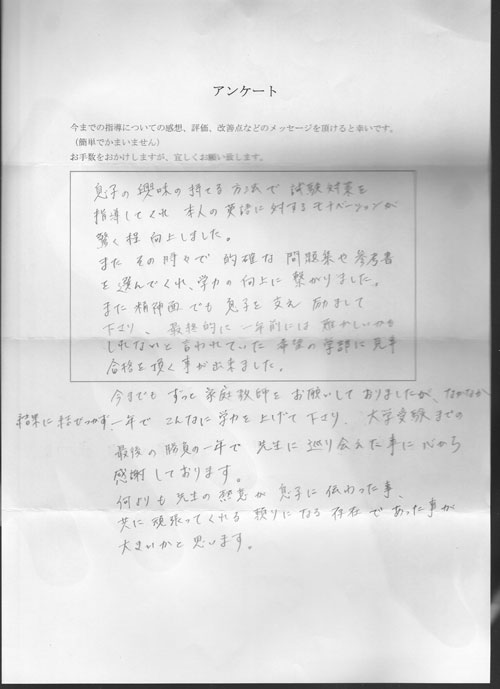 アンケート
今までの指導についての感想、評価、改善点などのメッセージを頂けると幸いです。
（簡単でかまいません）
お手数をおかけしますが、宜しくお願い致します。
息子の興味の持てる方法で試験対策を
指導してくれ 本人の英語に対するモチベーションが
驚く程 向上しました。
また その時々で 的確な 問題集や参考書
を選んでくれ、学力の向上に繋がりました。
また精神面でも 息子を支え 励まして
下さり、最終的に一年前には難かしいかも
しれないと言われていた 希望の学部に見事
合格を頂く事が出来ました。
今までも ずっと 家庭教師をお願いしておりましたが、なかなか
結果に結びつかず 一年で こんなに学力を上げて下さり、大学受験までの
最後の勝負の一年で 先生に巡り会えた事に心から
感謝しております。
何よりも先生の熱意が 息子に伝わった事、
共に頑張ってくれる 頼りになる 存在であった事が
大きいかと思います。